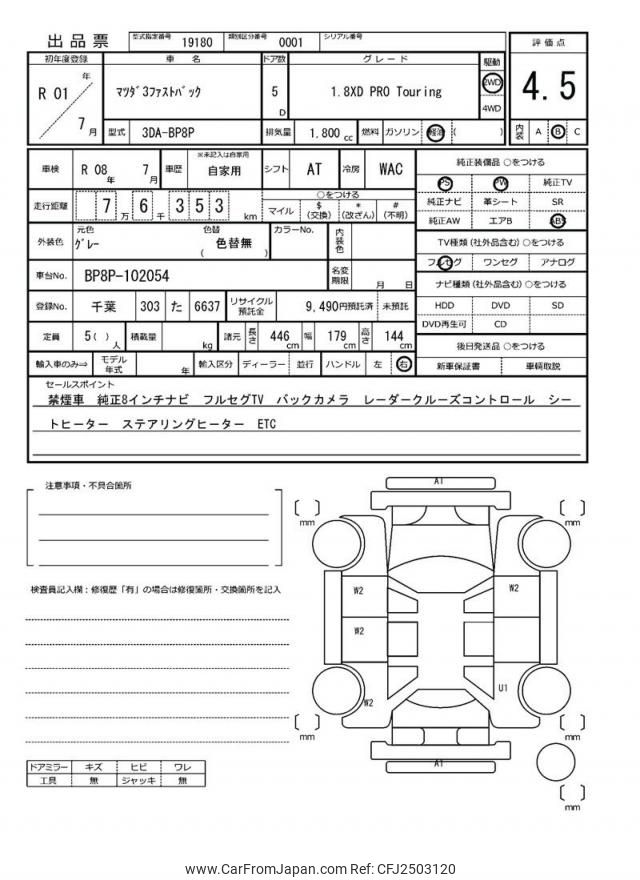 出品票 型式指定番号 19180 類別区分番号 0001 シリアル番号
初年度登録 車名 ドア数 グレード 駆動 評価点
R 01 年 7 月 マツダ3ファストバック 5 D 1.8XD PRO Touring 2WD 4WD 4.5
型式 3DA-BP8P 排気量 1,800 cc 燃料 ガソリン 軽油 ( ) 内装 A B C
車検 R 08 年 7 月 車歴 ※未記入は自家用 自家用 シフト AT 冷房 WAC
走行距離 7 万 6 千 3 5 3 km ○をつける マイル $ (交換) * (改ざん) # (不明)
外装色 元色 グレー 色替 色替無 ( ) カラーNo. 内装色
車台No. BP8P-102054 名変期限 月 日
登録No. 千葉 303 た 6637 リサイクル預託金 9,490円預託済 未預託
定員 5( ) 人 積載量 kg 諸元 長さ 446 cm 幅 179 cm 高さ 144 cm
輸入車のみ⇒ モデル年式 年 輸入区分 ディーラー 並行 ハンドル 左 右
純正装備品 ○をつける
PS PW 純正TV
純正ナビ 革シート SR
純正AW エアB ABS
TV種類(社外品含む)○をつける
フルセグ ワンセグ アナログ
ナビ種類(社外品含む)○をつける
HDD DVD SD
DVD再生可 CD
後日発送品 ○をつける
新車保証書 車輌取説
セールスポイント
禁煙車 純正8インチナビ フルセグTV バックカメラ レーダークルーズコントロール シー
トヒーター ステアリングヒーター ETC
注意事項・不具合箇所
検査員記入欄:修復歴「有」の場合は修復箇所・交換箇所を記入
ドアミラー キズ ヒビ ワレ
工具 無 ジャッキ 無
A1
mm mm
W2 W2
W2
W2 U1
mm mm
A1
mm
www.CarFromJapan.com Ref: CFJ2503120